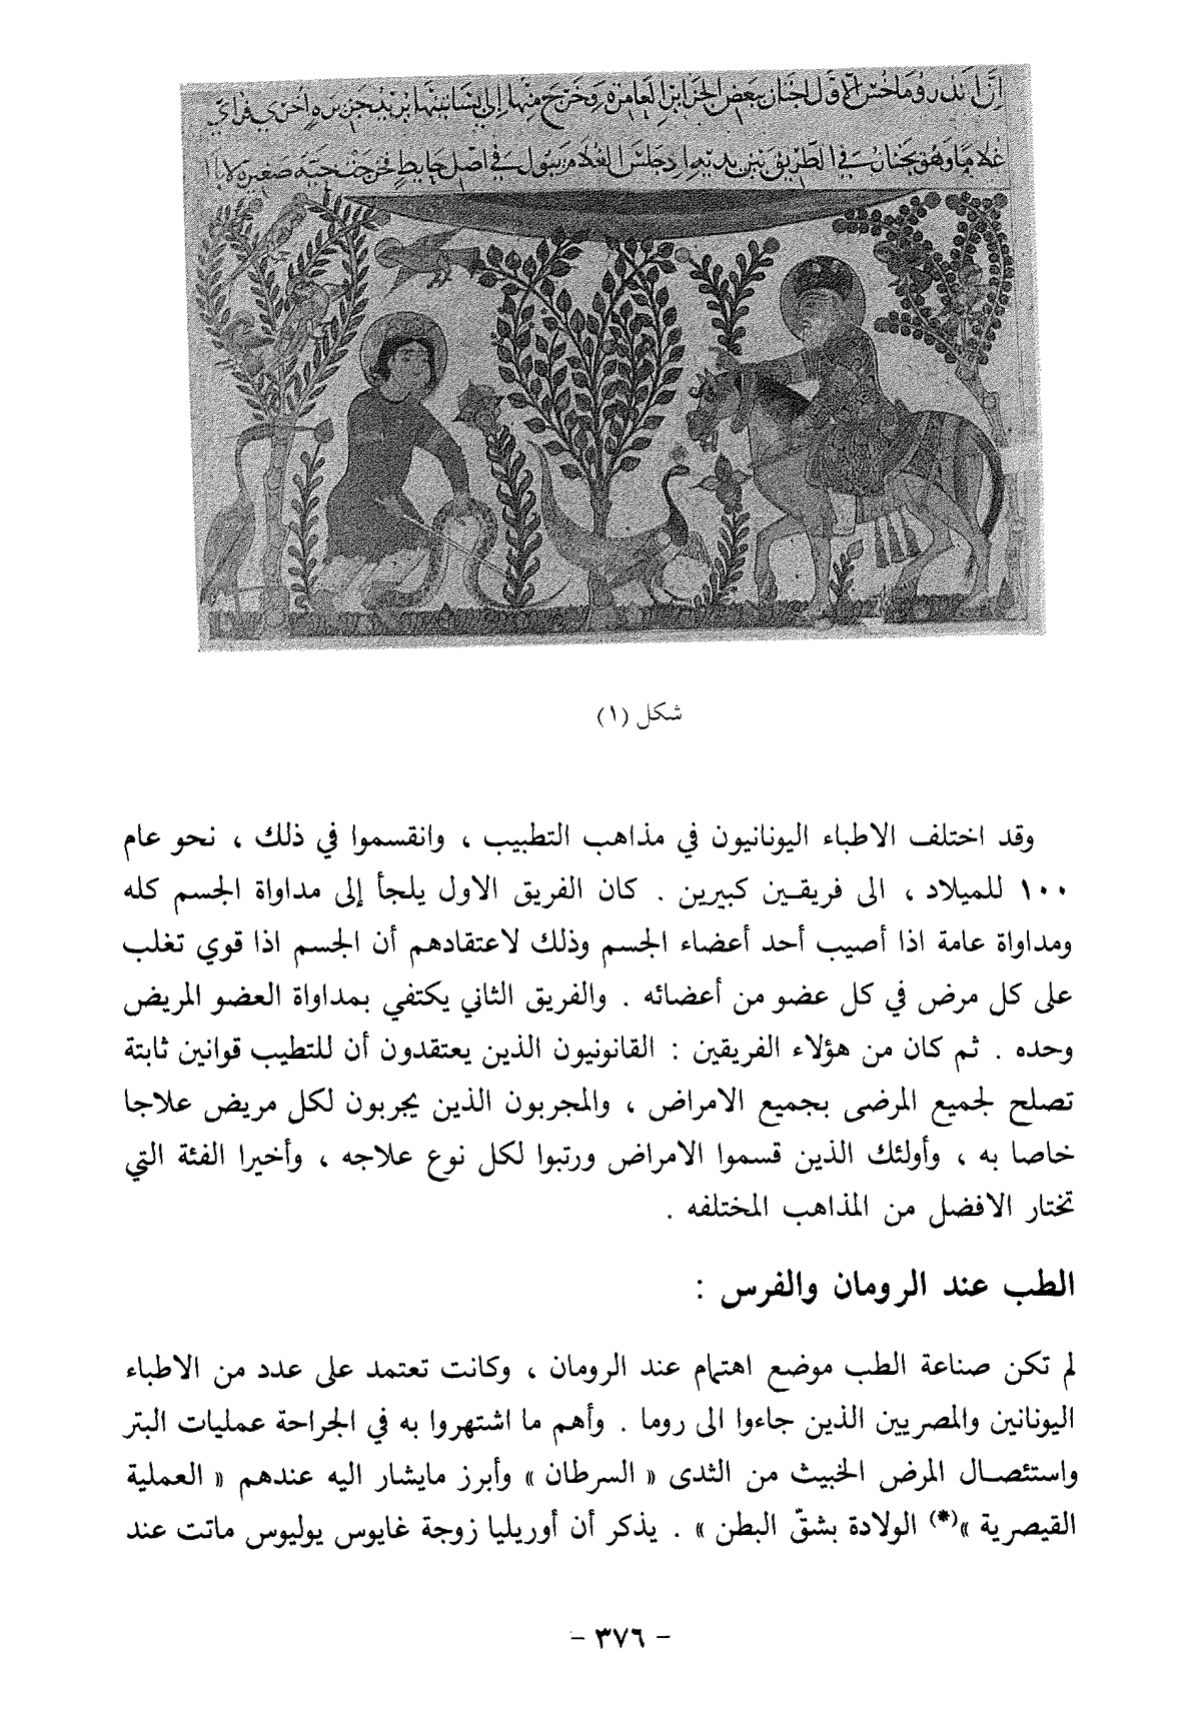 غلاما وهو في الطريق بين يديها اذ جلس الغلام يبول في اصل حايط فخرجت حية صغيرة
شكل (١)
وقد اختلف الاطباء اليونانيون في مذاهب التطبيب ، وانقسموا في ذلك ، نحو عام
١٠٠ للميلاد ، الى فريقـين كبيرين . كان الفريق الاول يلجأ إلى مداواة الجسم كله
ومداواة عامة اذا أصيب أحد أعضاء الجسم وذلك لاعتقادهم أن الجسم اذا قوي تغلب
على كل مرض في كل عضو من أعضائه . والفريق الثاني يكتفي بمداواة العضو المريض
وحده . ثم كان من هؤلاء الفريقين : القانونيون الذين يعتقدون أن للتطيب قوانين ثابتة
تصلح لجميع المرضى بجميع الامراض ، والمجربون الذين يجربون لكل مريض علاجا
خاصا به ، وأولئك الذين قسموا الامراض ورتبوا لكل نوع علاجه ، وأخيرا الفئة التي
تختار الافضل من المذاهب المختلفه .
الطب عند الرومان والفرس :
لم تكن صناعة الطب موضع اهتمام عند الرومان ، وكانت تعتمد على عدد من الاطباء
اليونانين والمصريين الذين جاءوا الى روما . وأهم ما اشتهروا به في الجراحة عمليات البتر
واستئصـال المرض الخبيث من الثدى « السرطان » وأبرز مايشار اليه عندهم « العملية
القيصرية »(*) الولادة بشقّ البطن » . يذكر أن أوريليا زوجة غايوس يوليوس ماتت عند
- ٣٧٦ -